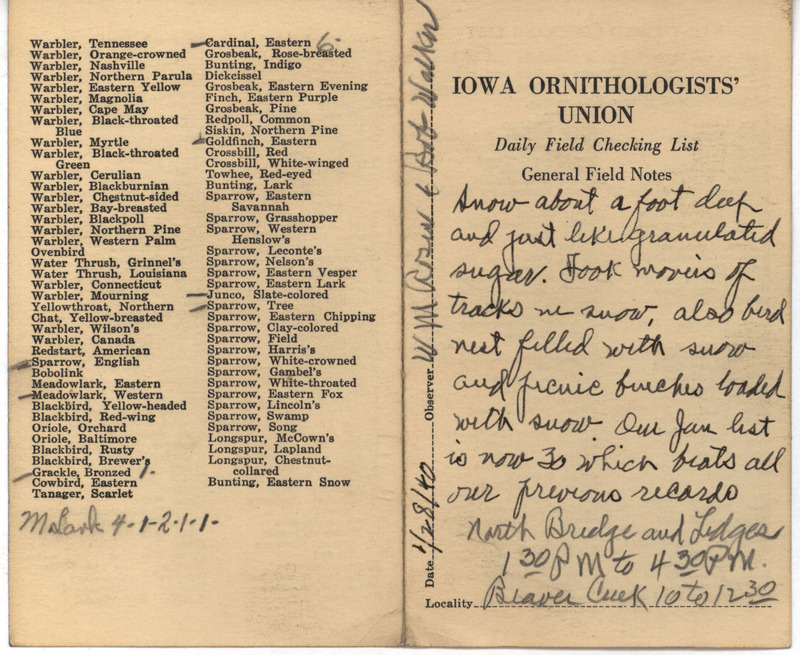 Warbler, Tennessee
Warbler, Orange-crowned
Warbler, Nashville
Warbler, Northern Parula
Warbler, Eastern Yellow
Warbler, Magnolia
Warbler, Cape May
Warbler, Black-throated
Blue
Warbler, Myrtle
Warbler, Black-throated
Green
Warbler, Cerulian
Warbler, Blackburnian
Warbler, Chestnut-sided
Warbler, Bay-breasted
Warbler, Blackpoll
Warbler, Northern Pine
Warbler, Western Palm
Ovenbird
Water Thrush, Grinnel's
Water Thrush, Louisiana
Warbler, Connecticut
Warbler, Mourning
Yellowthroat, Northern
Chat, Yellow-breasted
Warbler, Wilson's
Warbler, Canada
Redstart, American
Sparrow, English
Bobolink
Meadowlark, Eastern
Meadowlark, Western
Blackbird, Yellow-headed
Blackbird, Red-wing
Oriole, Orchard
Oriole, Baltimore
Blackbird, Rusty
Blackbird, Brewer's
Grackle, Bronzed 1.
Cowbird, Eastern
Tanager, Scarlet
M Lark 4-1-2-1-1-
Cardinal, Eastern 6-
Grosbeak, Rose-breasted
Bunting, Indigo
Dickcissel
Grosbeak, Eastern Evening
Finch, Eastern Purple
Grosbeak, Pine
Redpoll, Common
Siskin, Northern Pine
Goldfinch, Eastern
Crossbill, Red
Crossbill, White-winged
Towhee, Red-eyed
Bunting, Lark
Sparrow, Eastern
Savannah
Sparrow, Grasshopper
Sparrow, Western
Henslow's
Sparrow, Leconte's
Sparrow, Nelson's
Sparrow, Eastern Vesper
Sparrow, Eastern Lark
Junco, Slate-colored
Sparrow, Tree
Sparrow, Eastern Chipping
Sparrow, Clay-colored
Sparrow, Field
Sparrow, Harris's
Sparrow, White-crowned
Sparrow, Gambel's
Sparrow, White-throated
Sparrow, Eastern Fox
Sparrow, Lincoln's
Sparrow, Swamp
Sparrow, Song
Longspur, McCown's
Longspur, Lapland
Longspur, Chestnut-
collared
Bunting, Eastern Snow
Date 1/28/40 Observer W M Rosen & Bob Walker
IOWA ORNITHOLOGISTS'
UNION
Daily Field Checking List
General Field Notes
Snow about a foot deep
and just like granulated
sugar. Took movies of
tracks in snow, also bird
nest filled with snow
and picnic benches loaded
with snow. Our Jan list
is now 30 which beats all
our previous records
North Bridge and Ledges
1 30 PM to 4 30 P.M.
Locality Beaver Creek 10 to 12 30